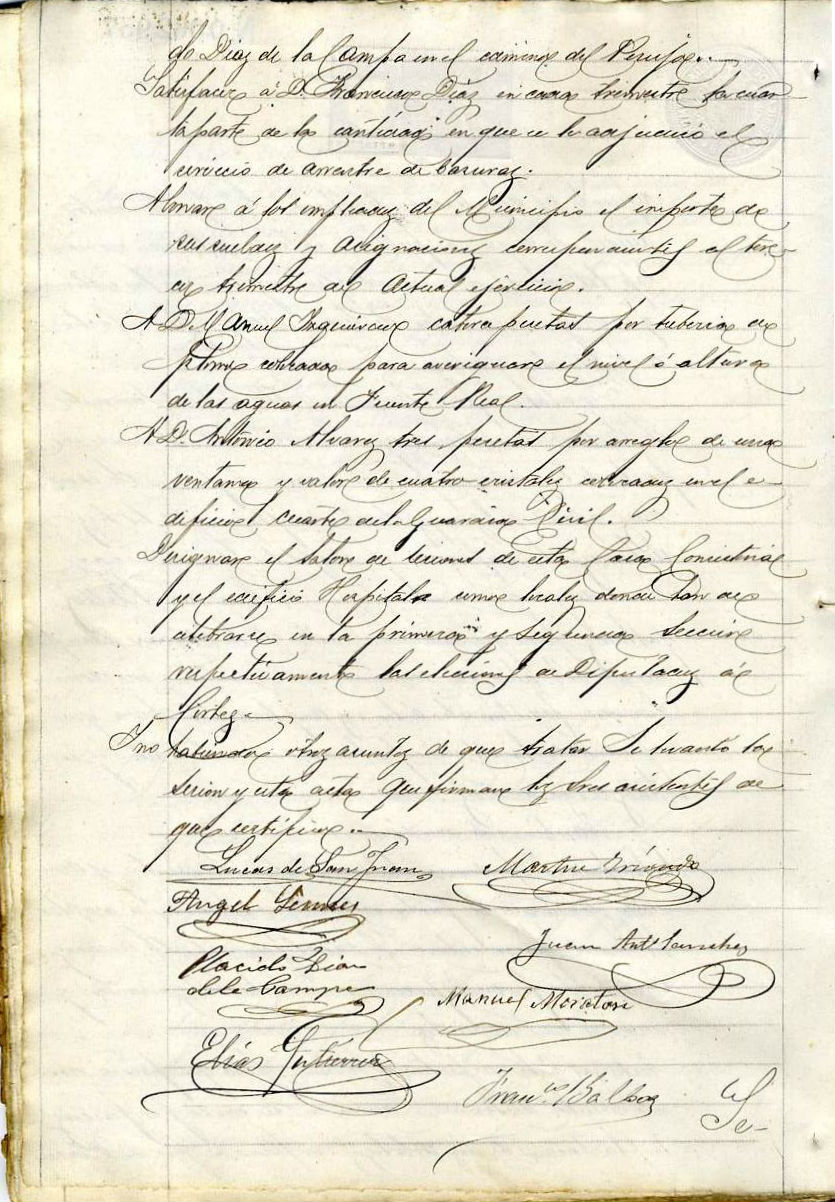 do Diaz de la Campa en el camino del
Satisfacer á D. Francisco Diaz en cada trimestre la cuar-
ta parte de la cantidad en que se le adjudicó el
servicio de arrastre de basuras.
Abonar á los empleados del Municipio el importe de
sus sueldos y asignaciones correspondientes al ter-
cer trimestre del actual ejercicio.
A D. Manuel catorce pesetas por tuberia de
plomo colocada para averiguar el nivel ó altura
de las aguas en Fuente Real.
A D. Antonio Alvarez tres pesetas por arreglo de una
ventana y valor de cuatro cristales colocados en el e-
dificio Cuartel de la Guardia Civil.
Designar el Salon de sesiones de esta Casa Consistorial
y el edificio Hospital como locales donde han de
celebrarse en la primera y segunda Seccion
respectivamente las elecciones de Diputados á
Cortes.
Y no habiendo otros asuntos de que tratar se levantó la
sesion y esta acta que firman los Sres asistentes de
que certifico.
Lucas de San Juan
Martin
Angel
Juan Ant.º Sanchez
Placido Diaz
de la Campa
Manuel
Elías Gutierrez
Franc.co Balbas